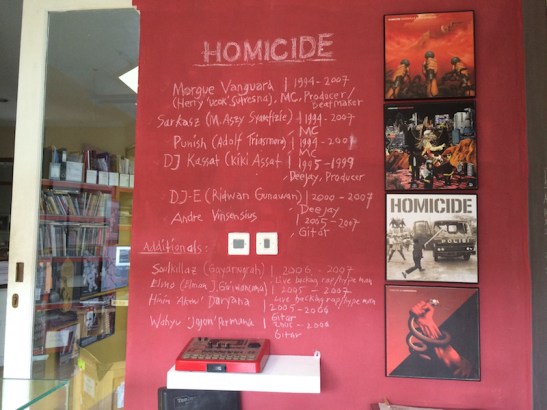 HOMICIDE
Morgue Vanguard | 1994-2007
(Herry 'ucok' Sutresna), MC, Producer/
Beatmaker
Sarkasz (M. Asty | 1994-2007
MC
Punish (Adolf | 1994-2007
MC
DJ Kassat (Kiki Assaf | 1995-1999
Deejay, Producer
DJ-E (Ridwan Gunawan) | 2000-2007
Deejay
Andre Vinsensius | 2005-2007
Gitar
Additionals:
Soulkillaz | 2006-2007
Live backing rap/hype man
| 2005-2007
Live backing rap/hype man
Daryana | 2005-2006
Gitar
Wahyu Permana | 2005-2006
Gitar
HOMICIDE
POLICE